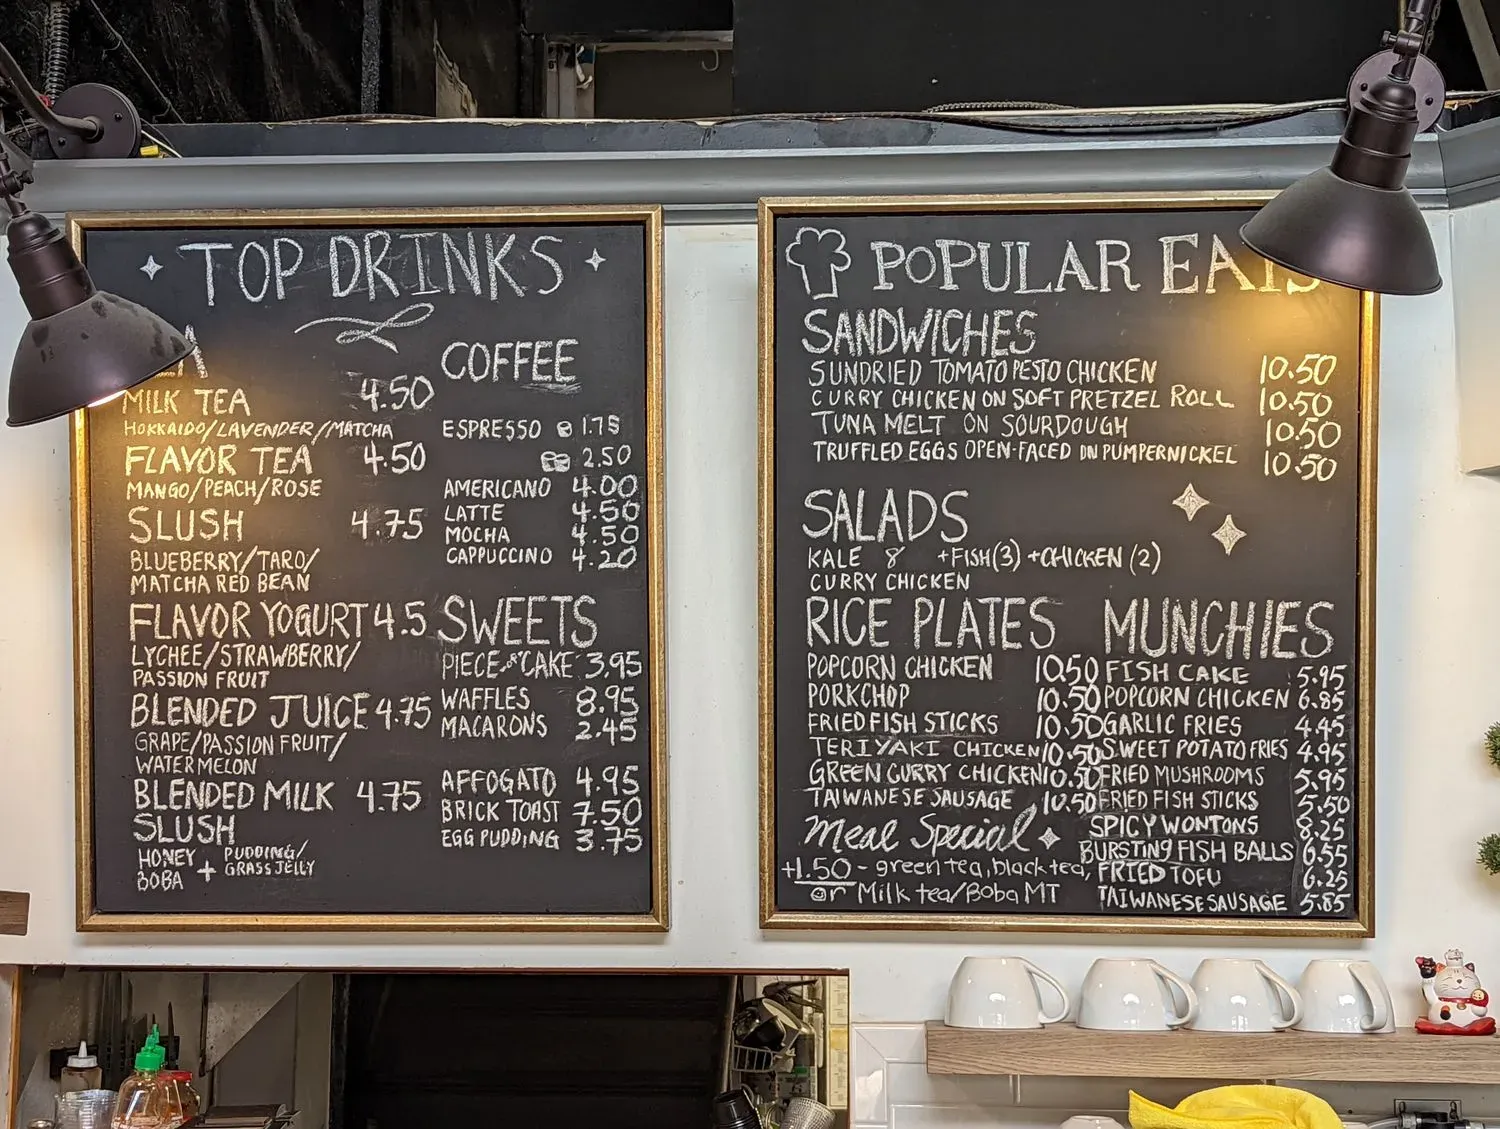 TOP DRINKS
MILK TEA 4.50
HOKKAIDO/LAVENDER/MATCHA
FLAVOR TEA 4.50
MANGO/PEACH/ROSE
SLUSH 4.75
BLUEBERRY/TARO/
MATCHA RED BEAN
FLAVOR YOGURT 4.5
LYCHEE/STRAWBERRY/
PASSION FRUIT
BLENDED JUICE 4.75
GRAPE/PASSION FRUIT/
WATERMELON
BLENDED MILK 4.75
SLUSH
HONEY + PUDDING/
BOBA GRASS JELLY
COFFEE
ESPRESSO 1.75
2.50
AMERICANO 4.00
LATTE 4.50
MOCHA 4.50
CAPPUCCINO 4.20
SWEETS
PIECE of CAKE 3.95
WAFFLES 8.95
MACARONS 2.45
AFFOGATO 4.95
BRICK TOAST 7.50
EGG PUDDING 3.75
POPULAR EATS
SANDWICHES
SUNDRIED TOMATO PESTO CHICKEN 10.50
CURRY CHICKEN ON SOFT PRETZEL ROLL 10.50
TUNA MELT ON SOURDOUGH 10.50
TRUFFLED EGGS OPEN-FACED ON PUMPERNICKEL 10.50
SALADS
KALE 8 +FISH(3) +CHICKEN (2)
CURRY CHICKEN
RICE PLATES
POPCORN CHICKEN 10.50
PORKCHOP 10.50
FRIED FISH STICKS 10.50
TERIYAKI CHICKEN 10.50
GREEN CURRY CHICKEN 10.50
TAIWANESE SAUSAGE 10.50
Meal Special
+1.50 - green tea, black tea,
or Milk tea/Boba MT
MUNCHIES
FISH CAKE 5.95
POPCORN CHICKEN 6.85
GARLIC FRIES 4.45
SWEET POTATO FRIES 4.95
FRIED MUSHROOMS 5.95
FRIED FISH STICKS 5.50
SPICY WONTONS 8.25
BURSTING FISH BALLS 6.55
FRIED TOFU 6.25
TAIWANESE SAUSAGE 5.85